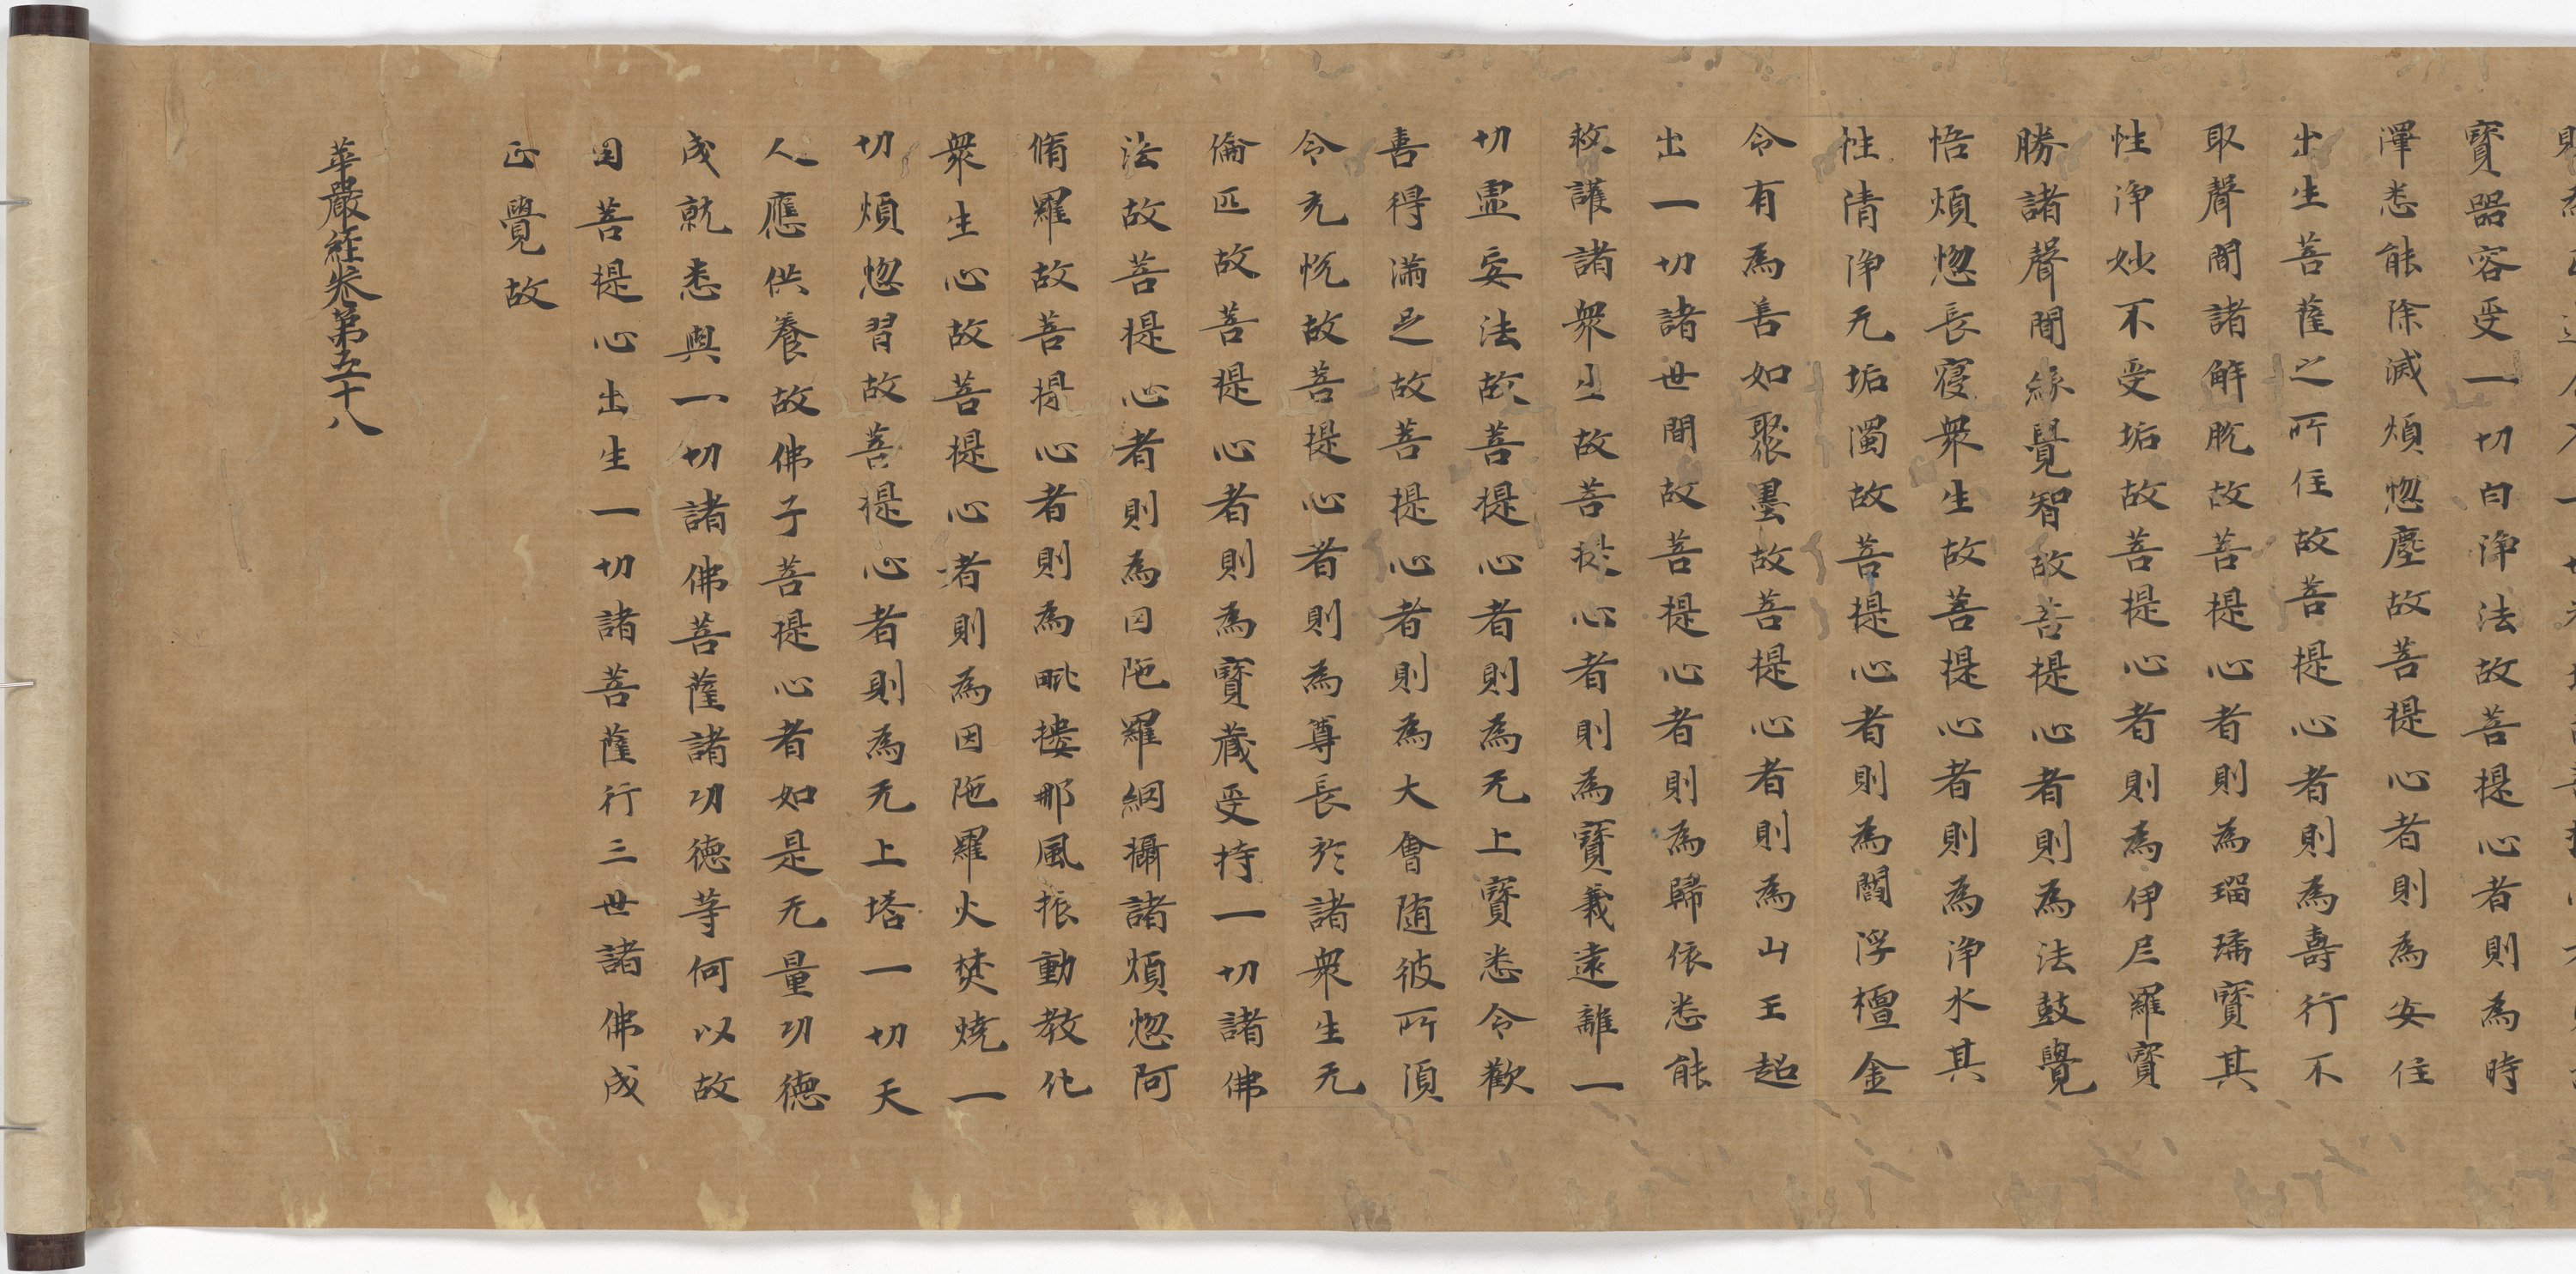 寶器容受一切白淨法故菩提心者則為時
澤悉能除滅煩惚塵故菩提心者則為安住
出生菩薩之所住故菩提心者則為壽行不
取聲聞諸解脫故菩提心者則為瑠璃寶其
性淨妙不受垢故菩提心者則為伊尼羅寶
勝諸聲聞緣覺智故菩提心者則為法鼓覺
悟煩惚長寢衆生故菩提心者則為淨水其
性清淨无垢濁故菩提心者則為閻浮檀金
令有為善如聚墨故菩提心者則為山王超
出一切諸世間故菩提心者則為歸依悉能
救護諸衆生故菩提心者則為寶義遠離一
切虛妄法故菩提心者則為无上寶悉令歡
喜得滿足故菩提心者則為大會随彼所湏
令充悅故菩提心者則為尊長於諸衆生无
倫匹故菩提心者則為寶藏受持一切諸佛
法故菩提心者則為因陁羅網攝諸煩惚阿
脩羅故菩提心者則為毗摟那風振動教化
衆生心故菩提心者則為因陁羅火焚燒一
切煩惚習故菩提心者則為无上塔一切天
人應供養故佛子菩提心者如是无量功德
成就悉與一切諸佛菩薩諸功德等何以故
因菩提心出生一切諸菩薩行三世諸佛成
正覺故
華嚴經卷第五十八